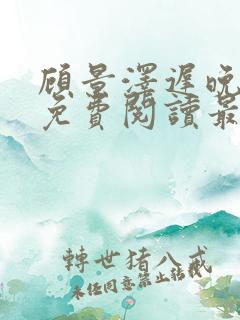 顧景澤遲晚
免費閱讀最
轉世豬八戒
未經同意禁止轉載